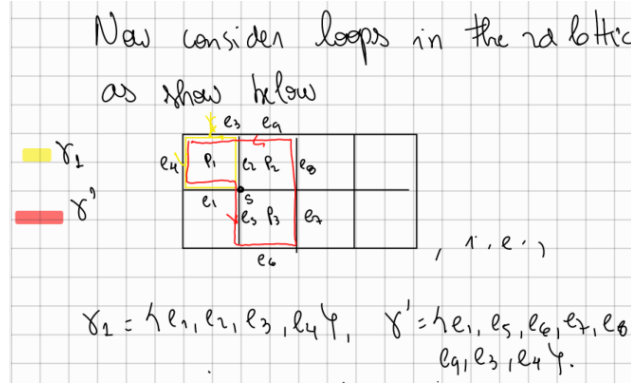 Now consider loops in the 2d lattic
as show below
e3 e9
γ1 e4 P1 e2 P2 e8
γ' e1 s
e5 P3 e7
e6
, i.e.,
γ1 = {e1, e2, e3, e4}, γ' = {e1, e5, e6, e7, e8
e9, e3, e4}.